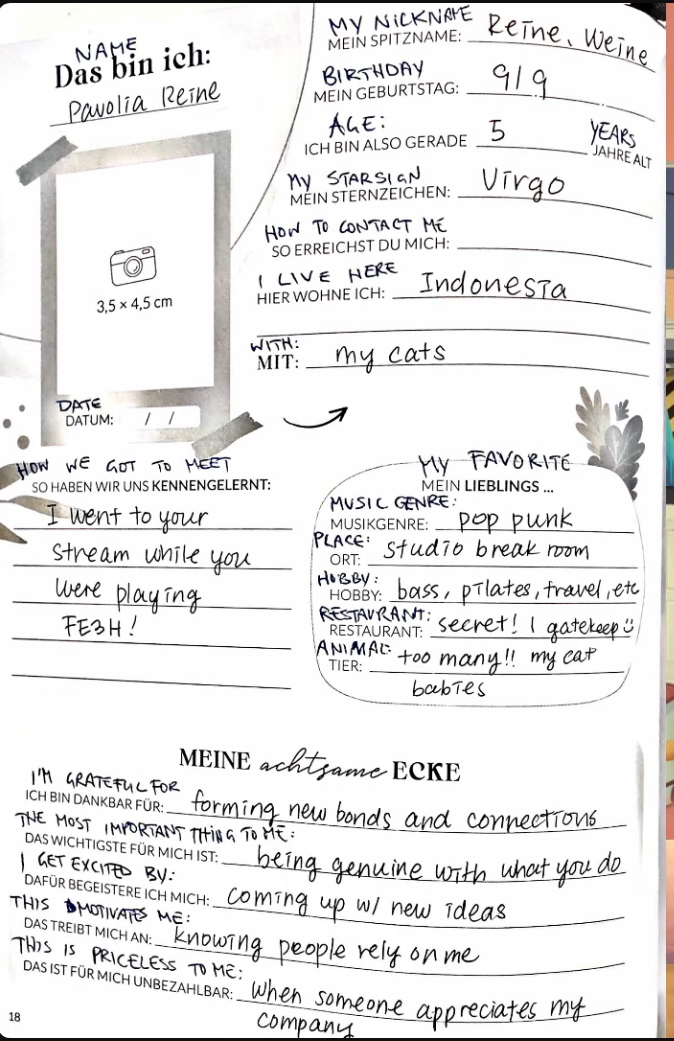 NAME
Das bin ich:
Pavolia Reine
3,5 × 4,5 cm
DATE
DATUM: / /
MY NICKNAME
MEIN SPITZNAME: Reine, Weine
BIRTHDAY
MEIN GEBURTSTAG: 9/9
AGE:
ICH BIN ALSO GERADE 5 YEARS
JAHRE ALT
MY STARSIGN
MEIN STERNZEICHEN: Virgo
HOW TO CONTACT ME
SO ERREICHST DU MICH:
I LIVE HERE
HIER WOHNE ICH: Indonesia
WITH:
MIT: my cats
HOW WE GOT TO MEET
SO HABEN WIR UNS KENNENGELERNT:
I went to your
stream while you
were playing
FE3H!
MY FAVORITE
MEIN LIEBLINGS ...
MUSIC GENRE:
MUSIKGENRE: pop punk
PLACE:
ORT: studio break room
HOBBY:
HOBBY: bass, pilates, travel, etc
RESTAURANT:
RESTAURANT: secret! I gatekeep
ANIMAL:
TIER: too many!! my cat
babies
MEINE achtsame ECKE
I'M GRATEFUL FOR
ICH BIN DANKBAR FÜR: forming new bonds and connections
THE MOST IMPORTANT THING TO ME:
DAS WICHTIGSTE FÜR MICH IST: being genuine with what you do
I GET EXCITED BY:
DAFÜR BEGEISTERE ICH MICH: coming up w/ new ideas
THIS MOTIVATES ME:
DAS TREIBT MICH AN: knowing people rely on me
THIS IS PRICELESS TO ME:
DAS IST FÜR MICH UNBEZAHLBAR: when someone appreciates my
company
18